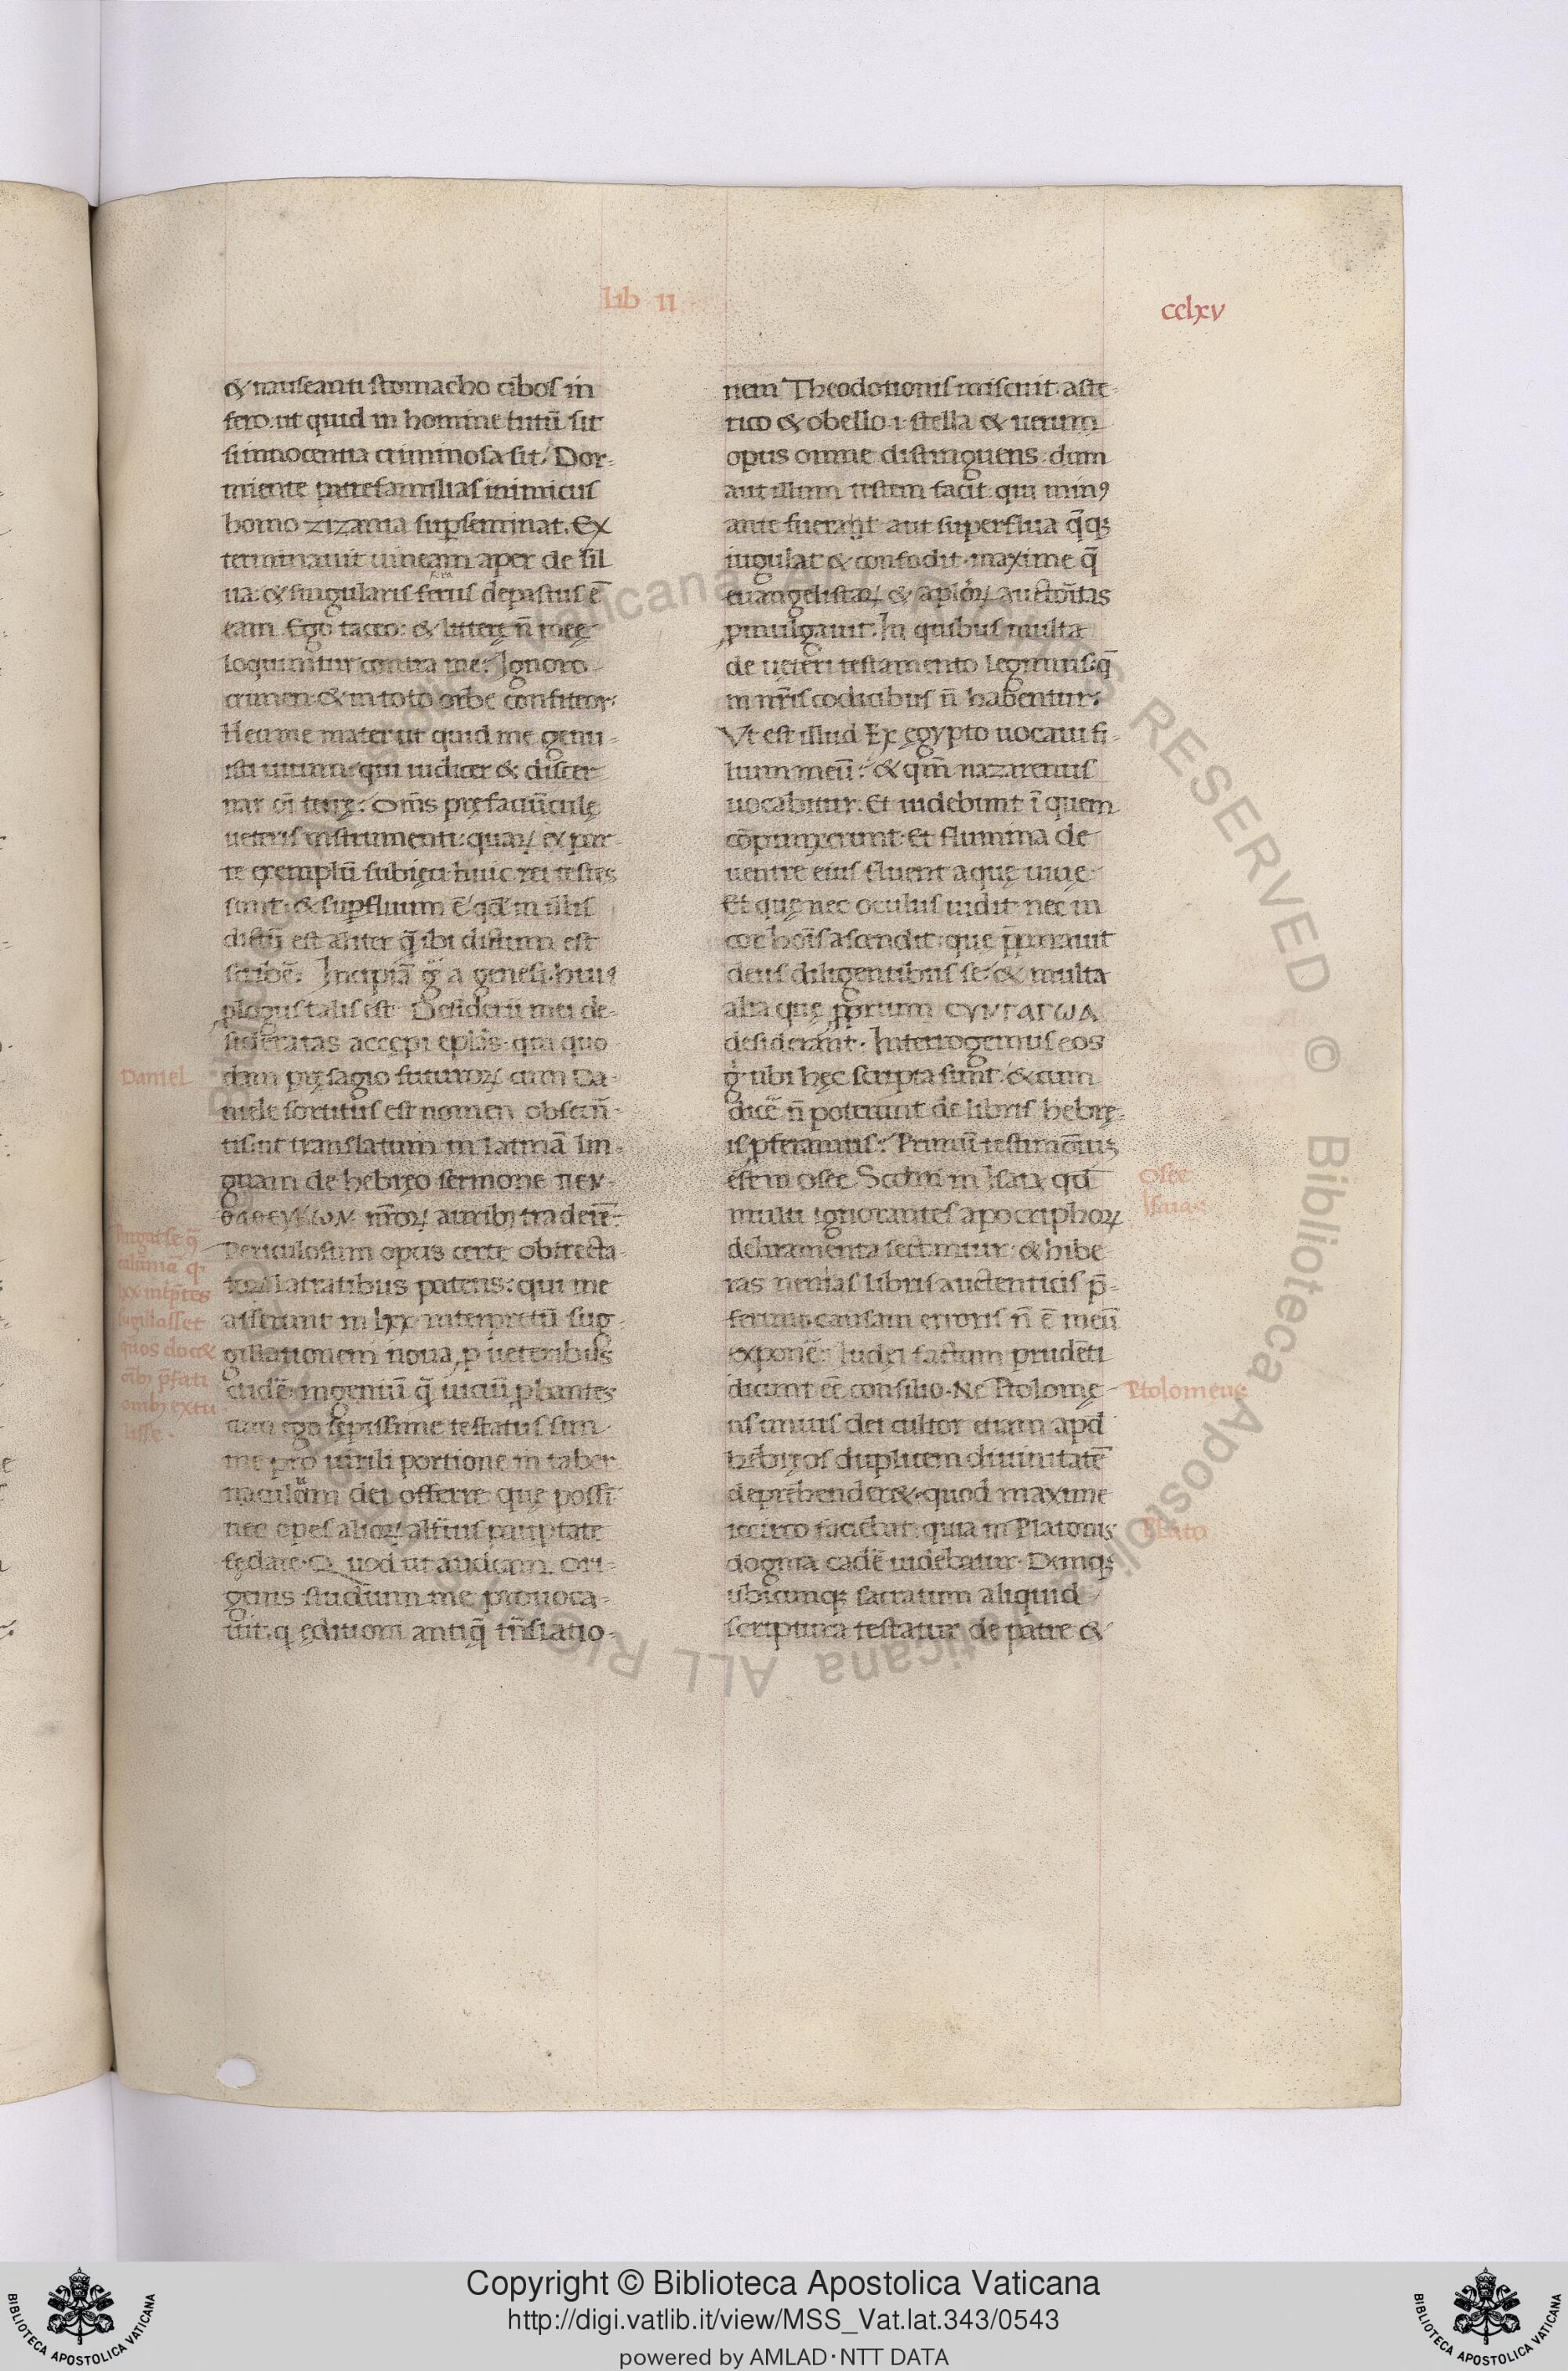 Lib II
cclxv
& nauseanti stomacho cibos in
fero. ut quid in homine tutū sit
si innocentia criminosa sit. Dor-
miente patrefamilias inimicus
homo zizania supseminat. Ex
terminauit uineam aper de sil
ua: & singularis ferus depastus ē
eam. Ego taceo: & littere n̄ meę
loquuntur contra me. Ignoro
crimen & in toto orbe confiteor.
Heu me mater ut quid me genu-
isti uirum: qui iudicer & discer
nar oī terrę. Om̄s pręfaciūculę
ueteris instrumenti: quaꝝ ex par
te exemplū subięci huic rei testes
sunt: & supfluum ē qd in illis
dictū est aliter q̄ ibi dictum est
scribē. Incipiā gͥ a genesi. huiꝰ
plogus talis est. Desiderii mei de-
sideratas accepi eplas. qui quo
dam pręsagio futuroꝝ cum Da-
niele sortitus est nomen obsecrā-
tis: ut translatum in latinā lin-
guam de hebręo sermone ΠΕΝ-
ΤΑΤΕΥΚΙΟΝ nr̄oꝝ auribꝫ traderē.
Periculosum opus certe obtrecta-
toꝝ latratibus patens: qui me
asserunt in lxx interpretū sug-
gillationem noua p ueteribus
cudē. ingeniū q̄ uinū pbantes
cum ego sępissime testatus sim
me pro uirili portione in taber
naculum dei offerre que possī
nec opes alioꝝ alterius paupertate
fędare. Quod ut auderem Ori-
genis studium me prouoca-
uit. q editioni antiq̄ tr̄nslatio-
Daniel
nem Theodotionis miscuit. aste-
rico & obello .i. stella & uerum
opus omne distinguens. dum
aut illum ustem facit: qui minꝰ
ante fuerant aut superflua q̄qꝫ
iugulat & confodit. maxime q̄
euangelistaꝝ & aploꝝ auctoritas
pmulgauit. In quibus multa
de ueteri testamento legimus. q̄
in nr̄is codicibus n̄ habentur.
Vt est illud Ex egypto uocaui fi-
lium meū: & qm̄ nazareus
uocabitur. Et uidebunt ī quem
cōpunxerunt. Et flumina de
uentre eius fluent aque uiuę
Et que nec oculus uidit nec in
cor hoīs ascendit: que p̄parauit
deus diligentibus se: & multa
alia quę pprium CYNTAΓΩΑ
desiderant. Interrogemus eos
gͥ ubi hęc scripta sunt. & cum
dicē n̄ poterunt de libris hebrę-
is pferamus. Primū testimoniū
est in osee. Scdm̄ in Isaia qd
multi ignorantes apocriphoꝝ
deliramenta sectantur: & hibe
ras nenias libris auctenticis p̄-
ferunt. causam erroris n̄ ē meū
exponē. Iudęi factum prudēti
dicunt eē consilio. Ne Ptolomę-
us unius dei cultor etiam apd
hebręos duplicem diuinitatē
deprehender&. quod maxime
iccirco faciebat: quia in Platonis
dogma cadē uidebatur. Deniqꝫ
ubicunqꝫ sacratum aliquid
scriptura testatur de patre &
Osee
Isaias
Ptolomeus
Plato
Copyright © Biblioteca Apostolica Vaticana
http://digi.vatlib.it/view/MSS_Vat.lat.343/0543
powered by AMLAD·NTT DATA